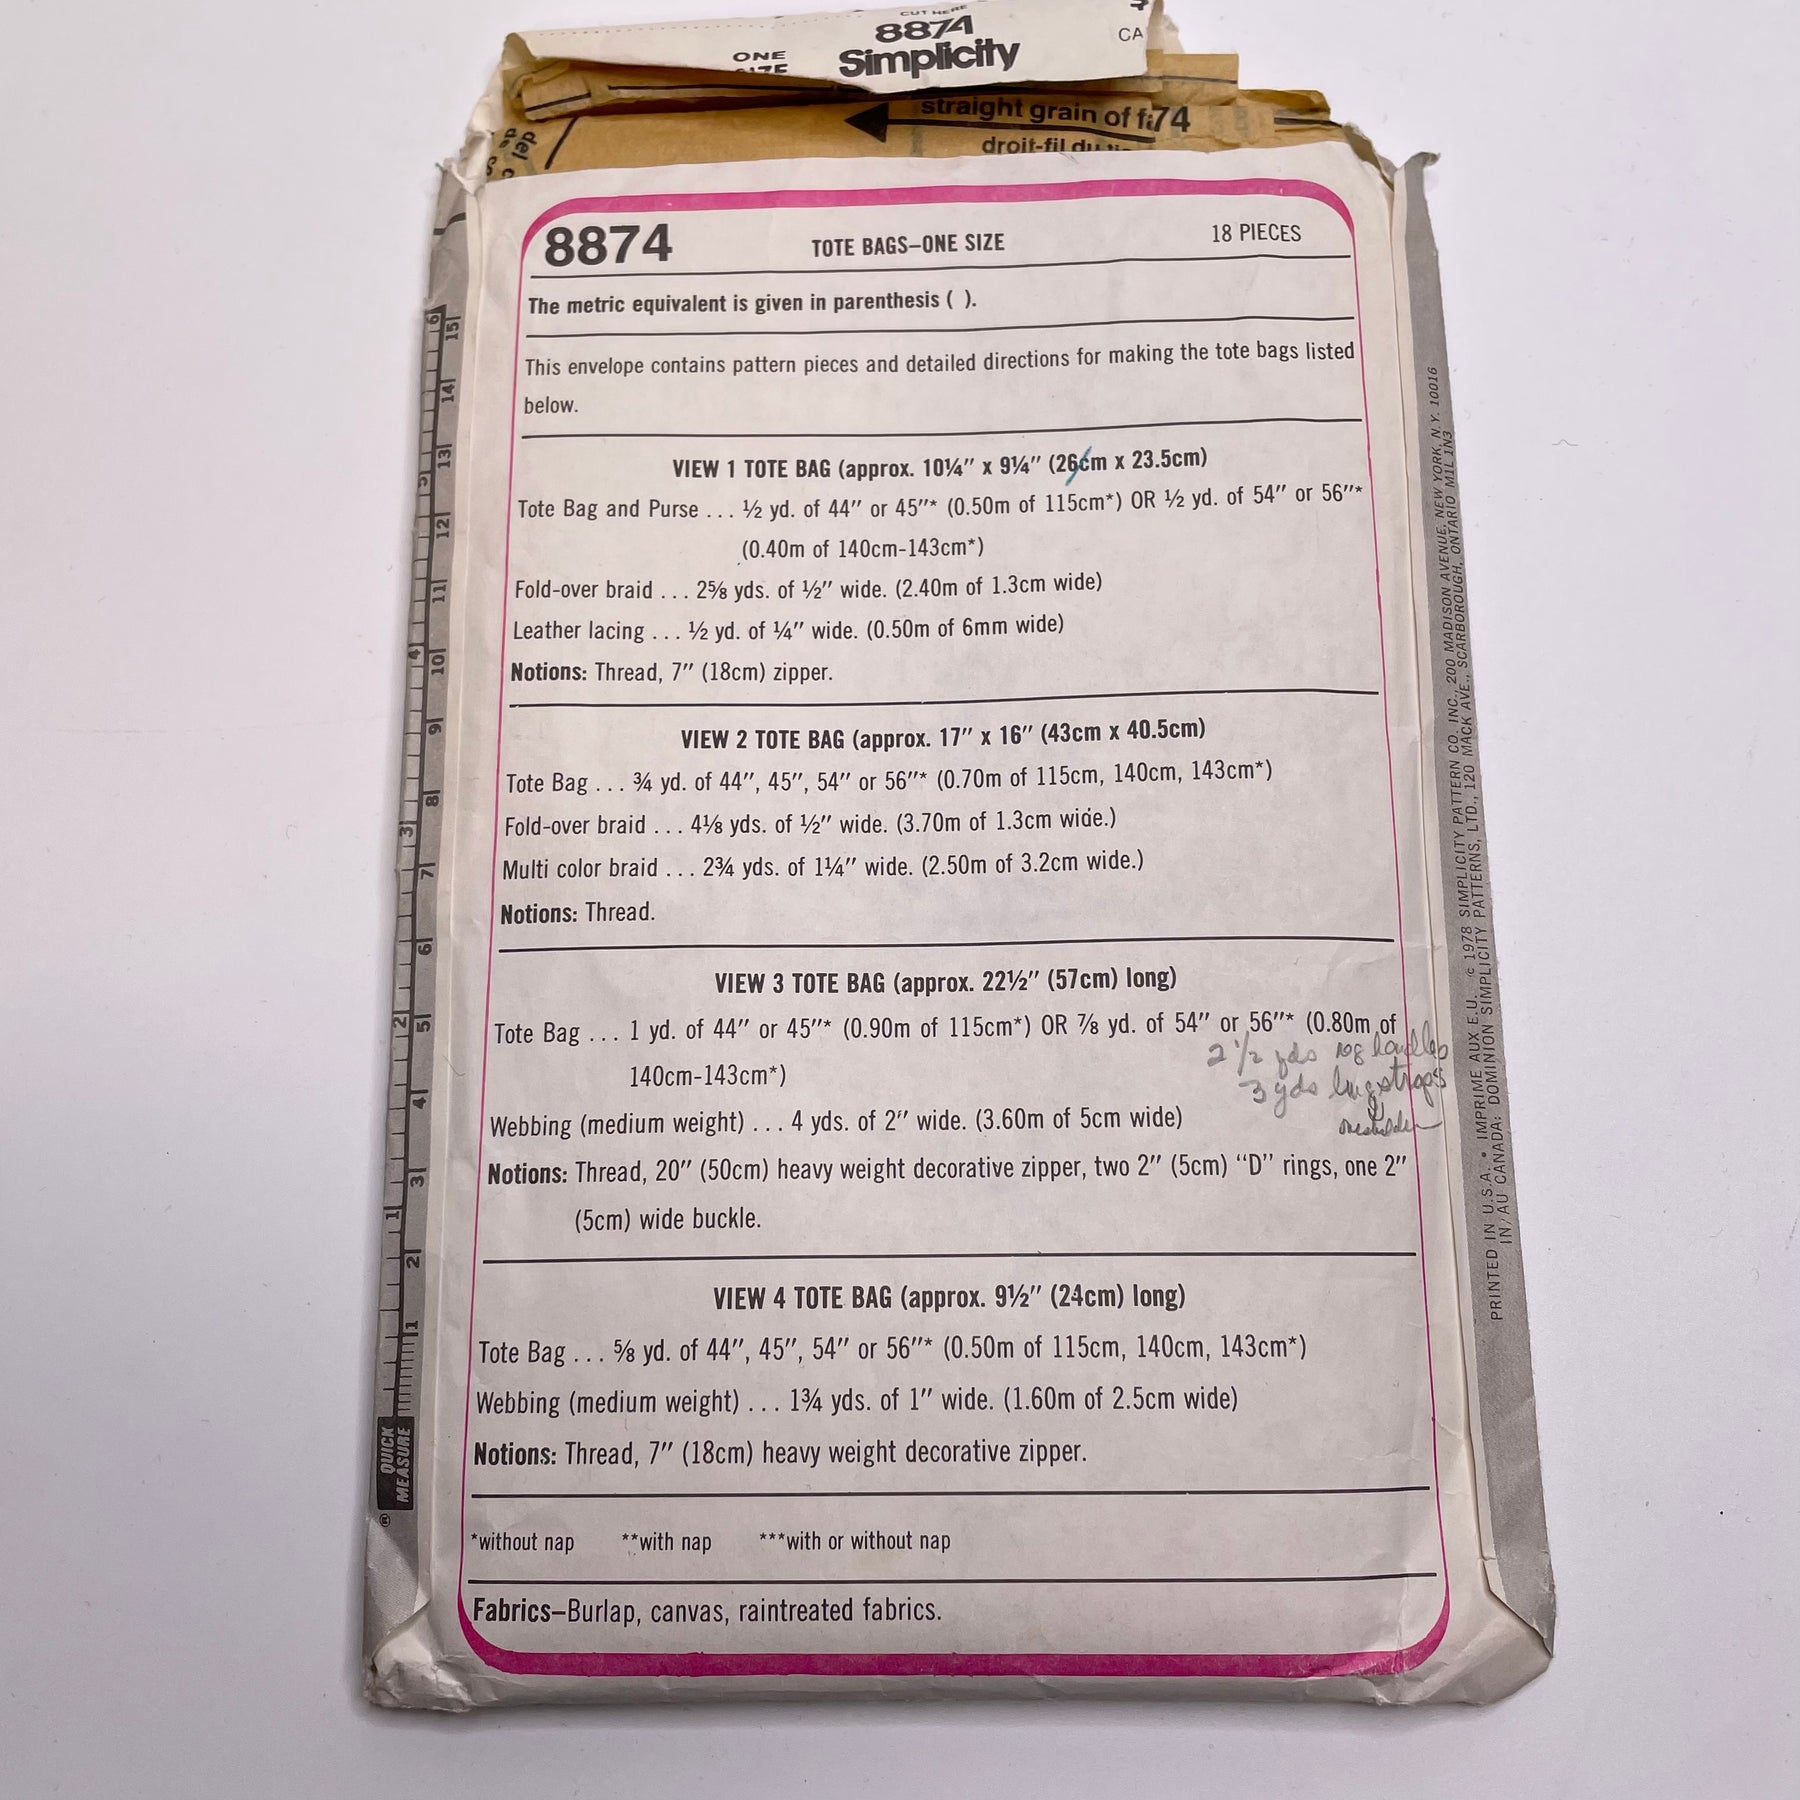 CUT HERE
8874
Simplicity
ONE
SIZE
CA
straight grain of f
74
droit-fil du
del
8874
TOTE BAGS–ONE SIZE
18 PIECES
The metric equivalent is given in parenthesis ( ).
This envelope contains pattern pieces and detailed directions for making the tote bags listed
below.
VIEW 1 TOTE BAG (approx. 10¼" x 9¼" (26cm x 23.5cm)
Tote Bag and Purse ... ½ yd. of 44" or 45"* (0.50m of 115cm*) OR ½ yd. of 54" or 56"*
(0.40m of 140cm-143cm*)
Fold-over braid ... 2⅝ yds. of ½" wide. (2.40m of 1.3cm wide)
Leather lacing ... ½ yd. of ¼" wide. (0.50m of 6mm wide)
Notions: Thread, 7" (18cm) zipper.
VIEW 2 TOTE BAG (approx. 17" x 16" (43cm x 40.5cm)
Tote Bag ... ¾ yd. of 44", 45", 54" or 56"* (0.70m of 115cm, 140cm, 143cm*)
Fold-over braid ... 4⅛ yds. of ½" wide. (3.70m of 1.3cm wide.)
Multi color braid ... 2¾ yds. of 1¼" wide. (2.50m of 3.2cm wide.)
Notions: Thread.
VIEW 3 TOTE BAG (approx. 22½" (57cm) long)
Tote Bag ... 1 yd. of 44" or 45"* (0.90m of 115cm*) OR ⅞ yd. of 54" or 56"* (0.80m of
140cm-143cm*)
2 ½ yds reg handles
3 yds long straps
Webbing (medium weight) ... 4 yds. of 2" wide. (3.60m of 5cm wide)
Notions: Thread, 20" (50cm) heavy weight decorative zipper, two 2" (5cm) "D" rings, one 2"
(5cm) wide buckle.
VIEW 4 TOTE BAG (approx. 9½" (24cm) long)
Tote Bag ... ⅝ yd. of 44", 45", 54" or 56"* (0.50m of 115cm, 140cm, 143cm*)
Webbing (medium weight) ... 1¾ yds. of 1" wide. (1.60m of 2.5cm wide)
Notions: Thread, 7" (18cm) heavy weight decorative zipper.
*without nap **with nap ***with or without nap
Fabrics–Burlap, canvas, raintreated fabrics.
6 5 4 3 2 1
15 14 13 12 11 10 9 8 7 6 5 4 3 2 1
QUICK
MEASURE
®
PRINTED IN U.S.A. • IMPRIME AUX E.U. © 1978 SIMPLICITY PATTERN CO. INC., 200 MADISON AVENUE, NEW YORK, N.Y. 10016
IN/AU CANADA: DOMINION SIMPLICITY PATTERNS, LTD., 120 MACK AVE., SCARBOROUGH, ONTARIO M1L 1N3